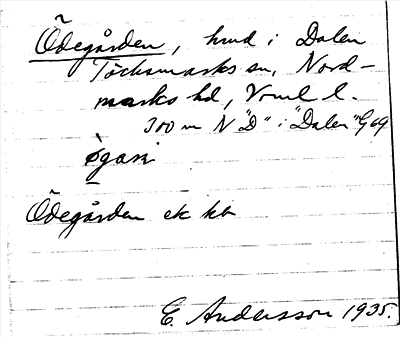 Ödegården, hmd i Dalen
Töcksmarks sn, Nord-
marks hd, Vrml l.
300 m N "D" i "Dalen" G69
ògaṇ
Ödegården ek kb
E. Andersson 1935.